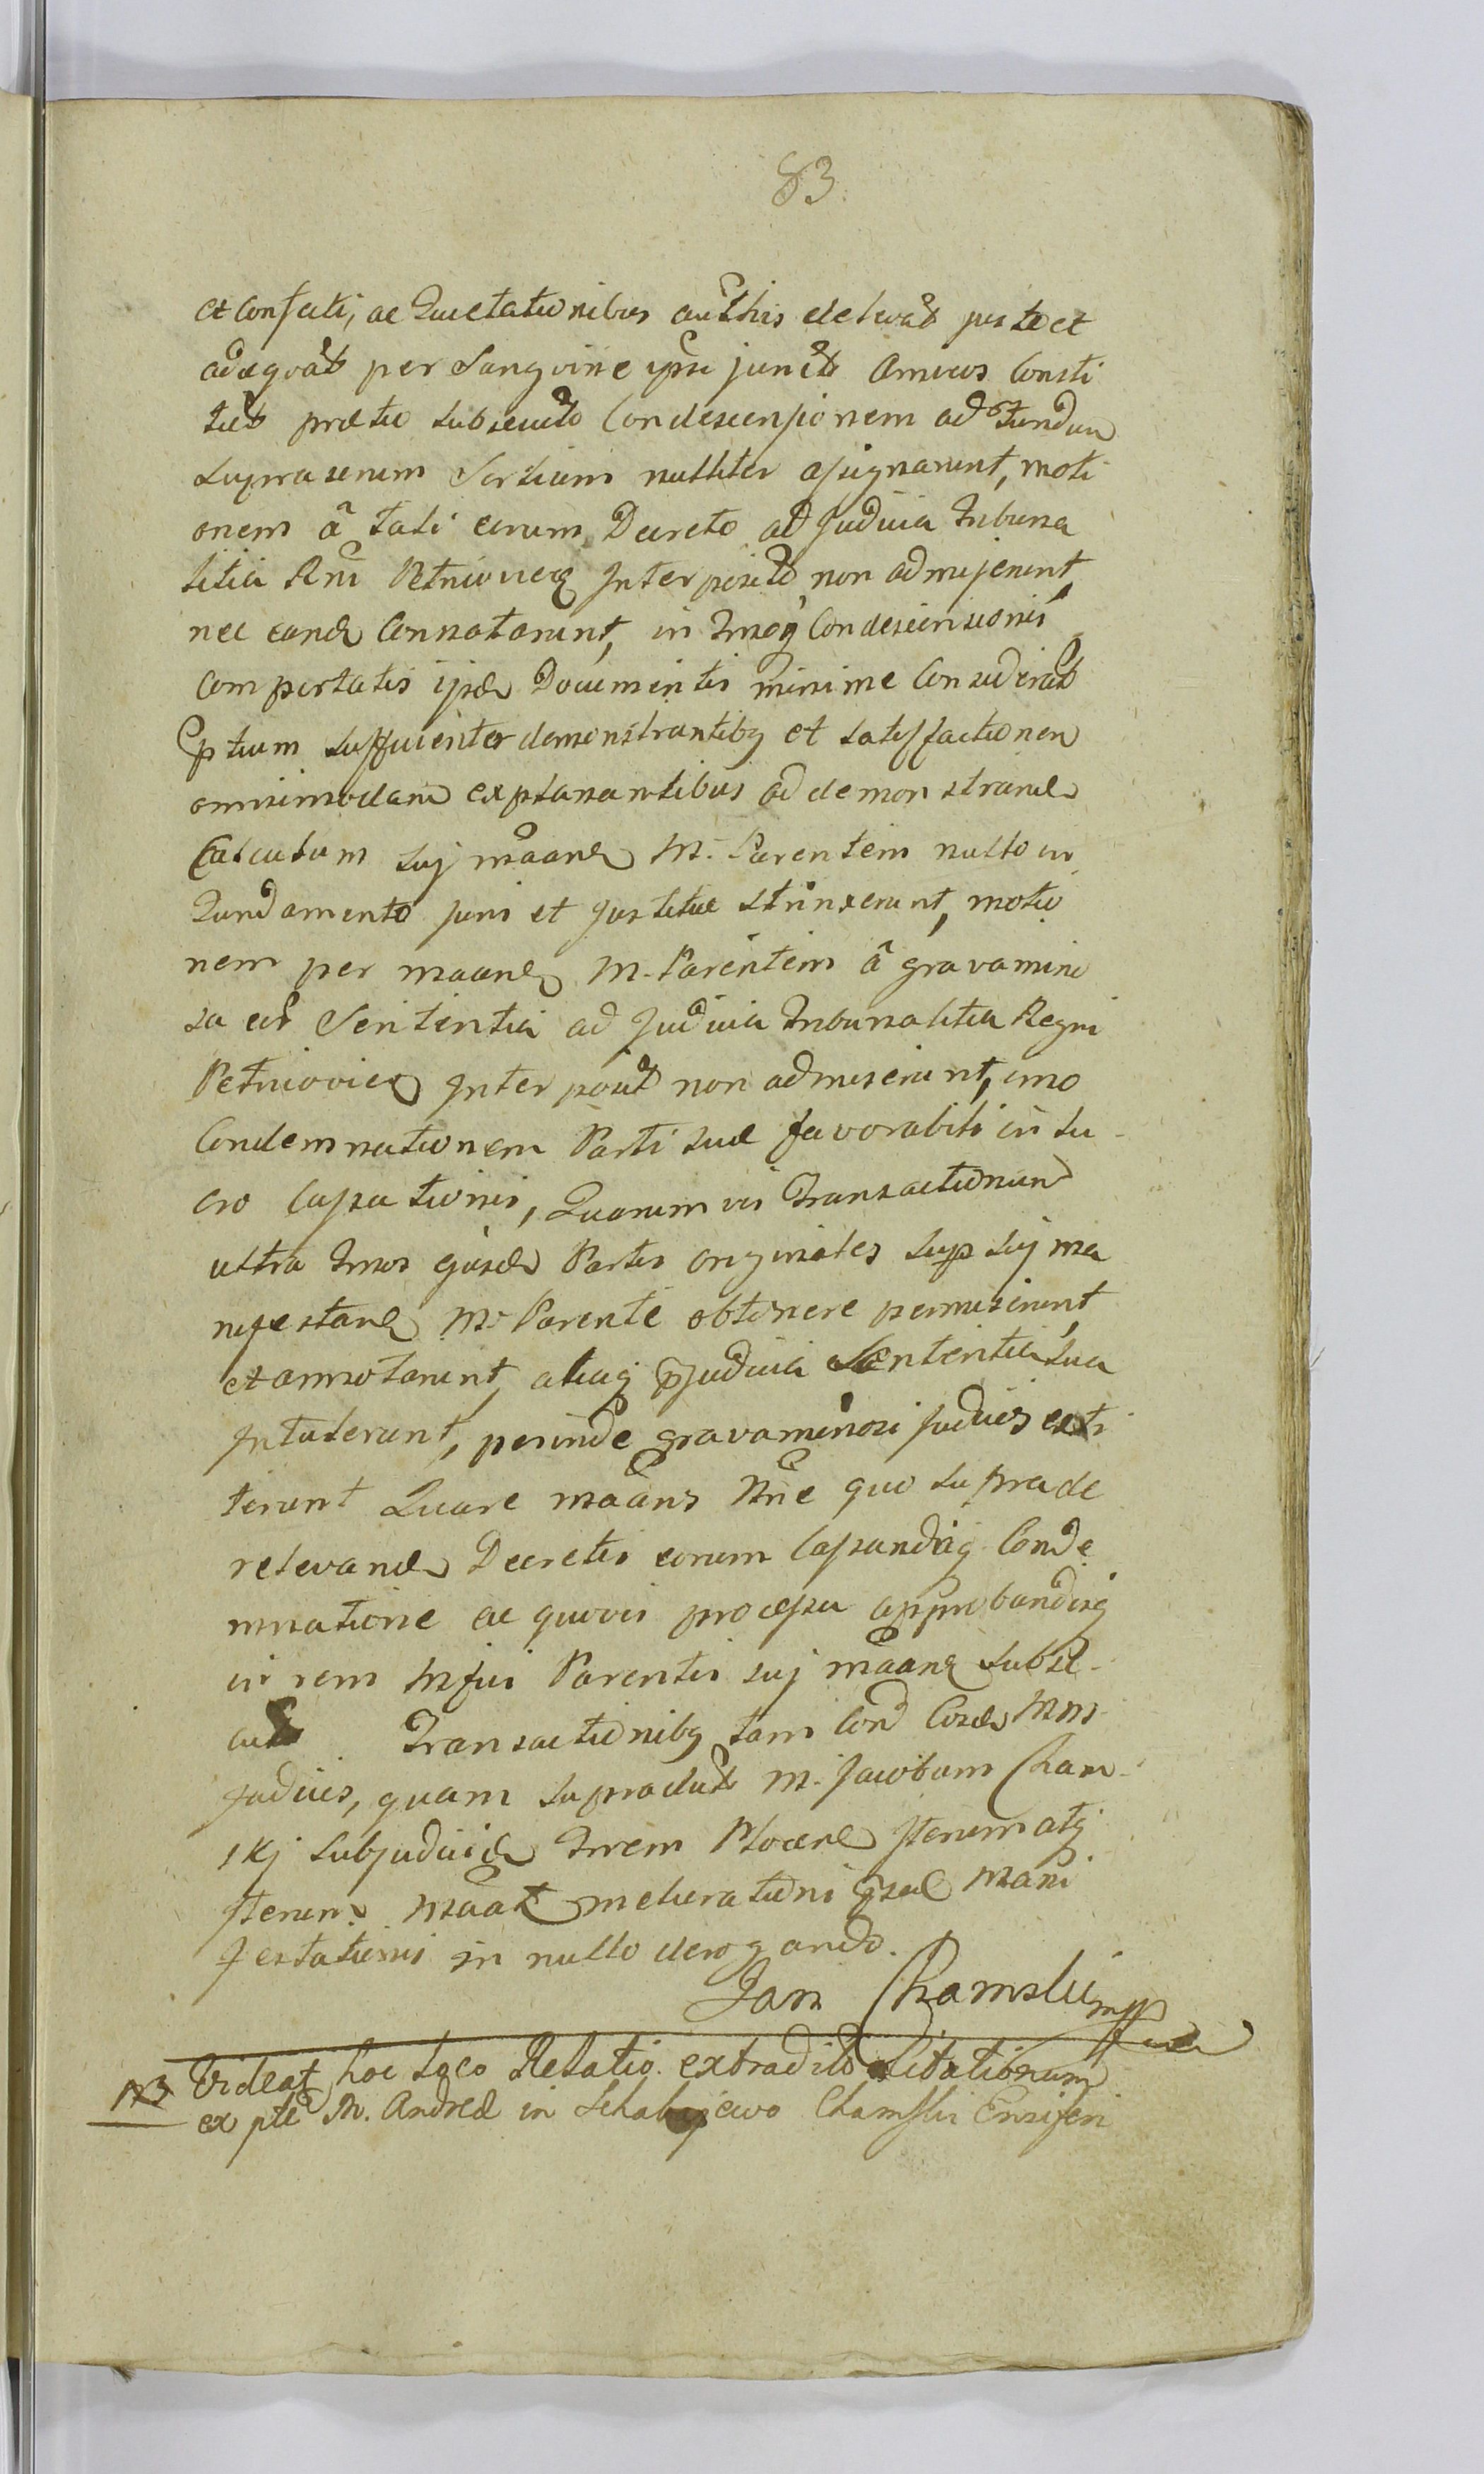 83.
et confecti, ac Quietationibus authis elevat juste et
adæquat per Sangvine ipsi junct Amicos Consti
tut prætio subsecuto Condescensionem ad Fundum
supra serum Sortium nulliter assignarunt, moti
onem â tali eorum Decreto ad Judicia Tribuna
litia Rni Petricovien Interposit non admiserunt,
nec eand Connotarunt, in Tmoq Condescensionis
comportatis ipse Documentis minime Considerat
ptium sufficienter demonstrantibq et satisfactionem
omnimodam explanantibus ad demonstrand
Calculum suj maand M. Parentem nullo in
Fundamento juris et justitiæ strinxerunt, motio
nem per maand M. Parentem â gravamino
sa ear Sententia ad Judicia Tribunalitia Regni
Petricovien Interposit non admiserunt, imo
Condemnationem Parti suæ favorabili in lu-
cro Cassationis, Quarumvis Transactionum
ultra Tmos ejusd Partis originales sup suj ma
nifestand M. Parente obtinere permiserunt,
et annotarunt, aliaq pjudicia Sententia sua
Intulerunt, perinde gravaminosi Judices exti
terunt Quare maans Nne quo supra de
relevand Decretis eorum Cassandisq Conde
mnatione ac quovis processu approbandisq
in rem Mfici Parentis suj maand subse-
cut Transactionibq tam Cond Cosd Mm
Judices, quam supradict M. Jacobum Cham-
skj Subjudicid Trrem Plocend Iterum atq
Iterum maat meliorationi psnt Mani
festationis in nullo derogando.
Jan Chamski mpp
NB Videat hoc loco Relatio extradit Citationum
ex pte M. Andreæ in Chamsski Ensiferi